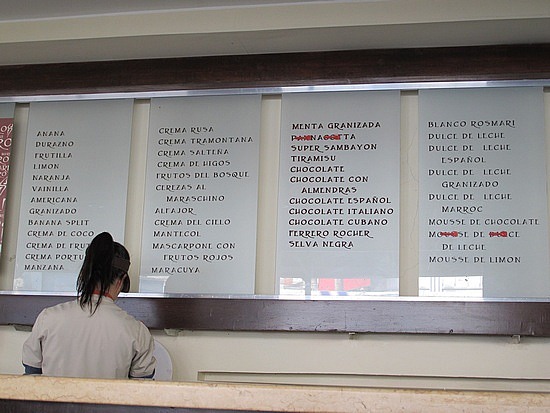 ANANA
DURAZNO
FRUTILLA
LIMON
NARANJA
VAINILLA
AMERICANA
GRANIZADO
BANANA SPLIT
CREMA DE COCO
CREMA DE
CREMA
MANZANA
CREMA RUSA
CREMA TRAMONTANA
CREMA SALTEÑA
CREMA DE HIGOS
FRUTOS DEL BOSQUE
CEREZAS AL
MARASCHINO
ALFAJOR
CREMA DEL CIELO
MANTECOL
MASCARPONE CON
FRUTOS ROJOS
MARACUYA
MENTA GRANIZADA
SUPER SAMBAYON
TIRAMISU
CHOCOLATE
CHOCOLATE CON
ALMENDRAS
CHOCOLATE ESPAÑOL
CHOCOLATE ITALIANO
CHOCOLATE CUBANO
FERRERO ROCHER
SELVA NEGRA
BLANCO ROSMARI
DULCE DE LECHE
DULCE DE LECHE
ESPAÑOL
DULCE DE LECHE
GRANIZADO
DULCE DE LECHE
MARROC
MOUSSE DE CHOCOLATE
DE
DE LECHE
MOUSSE DE LIMON